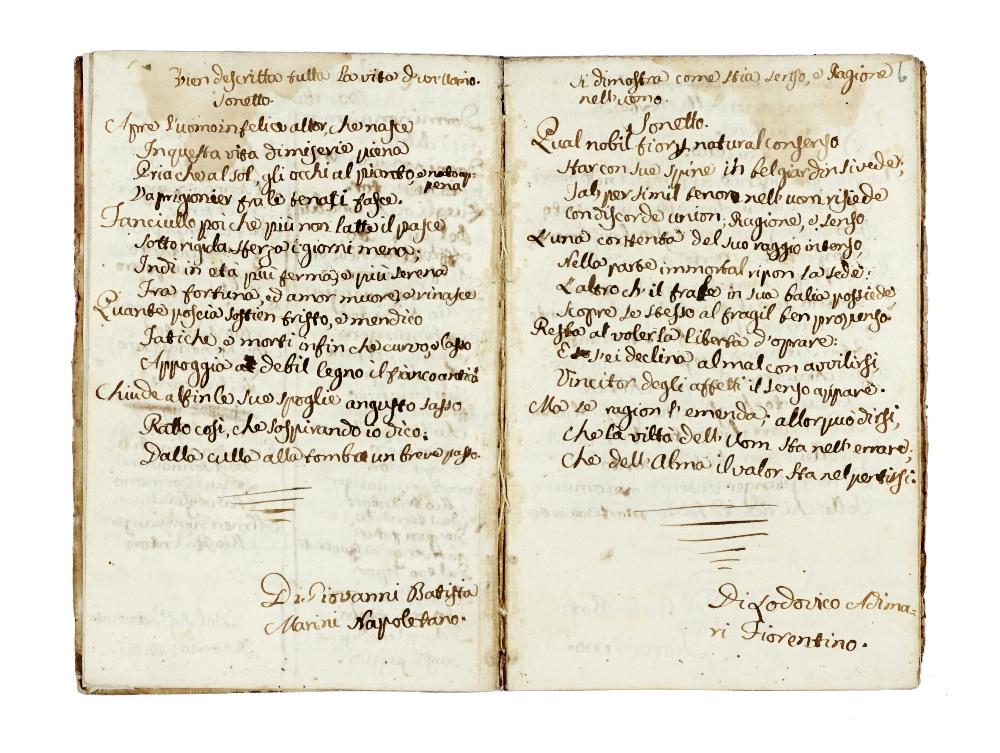 Vien descritta tutta la vita d'un Uomo.
Sonetto.
Apre l'uomo infelice allor, che nasce
In questa vita di miserie piena
Pria che al sol, gli occhi al pianto, e nato ap-
pena
Va prigionier frà le tenaci fasce.
Fanciullo poi che più non latte il pasce
Sotto rigida sferza i giorni mena;
Indi in età più ferma, e più serena
Tra fortuna, ed amor muore, e rinasce
Quante poscia sostien tristo, e mendico
Fatiche, e morti infin che curvo, e lasso
Appoggia a debil legno il fianco antico
Chiude alfin le sue spoglie angusto sasso
Ratto così, che sospirando io dico:
Dalla culla alla tomba è un breve passo.
Di Giovanni Batista
Marini Napoletano.
6
Si dimostra come stia senso, e Ragione
nell'uomo.
Sonetto.
Qual nobil fior, natural consenso
Star con sue spine in bel giardin si vede;
Tal, per simil tenore nell'uom risiede
Con discorde union, Ragione, e senso.
L'una contenta del suo raggio intenso,
Nella parte immortal ripon la sede;
L'altro ch'il frale in sua balia possiede
Scopre se stesso al fragil ben propenso.
Resta al voler la libertà d'oprare:
E se ei declina al mal con avvilirsi
Vincitor degli affetti il senso appare.
Ma se ragion l'emenda, allor può dirsi,
Che la viltà dell'Uom sta nell'errare,
Che dell'Alma il valor sta nel pentirsi.
Di Lodovico Adima-
ri Fiorentino.